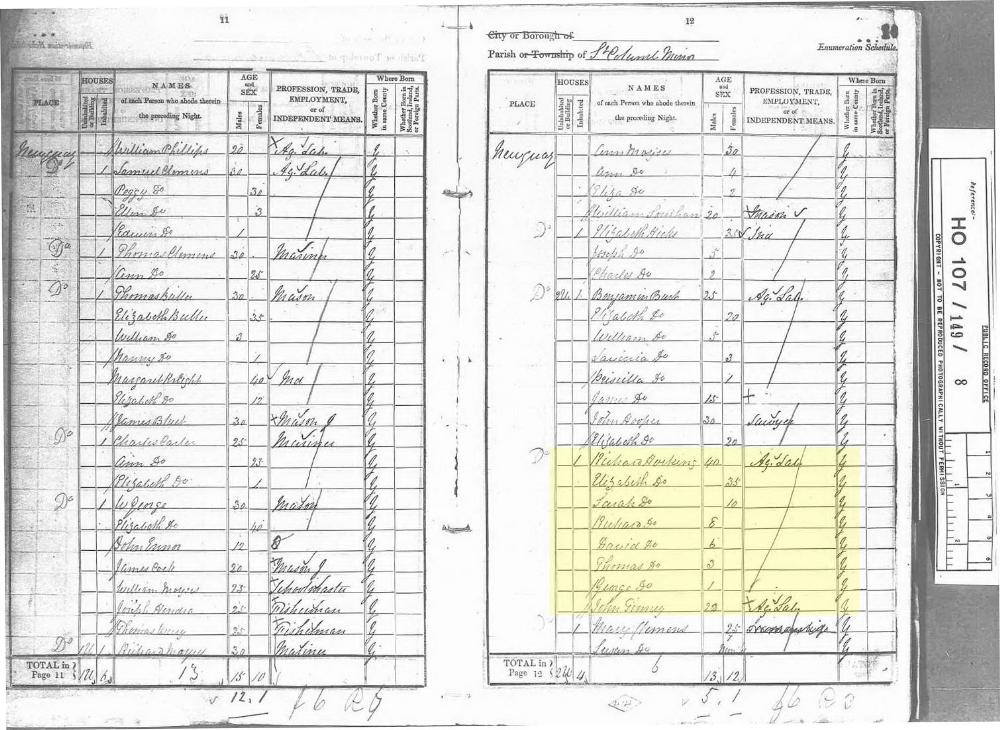 11
PLACE
HOUSES
Uninhabited or Building
Inhabited
NAMES
of each Person who abode therein
the preceding Night.
AGE
and
SEX
Males
Females
PROFESSION, TRADE,
EMPLOYMENT,
or of
INDEPENDENT MEANS.
Where Born
Whether Born in same County
Whether Born in Scotland, Ireland, or Foreign Parts.
Newquay William Phillips 20 Ag. Lab. Y
Do 1 Samuel Clemens 30 Ag. Lab. Y
Peggy Do 30 Y
Ellen Do 3 Y
Edwin Do 1 Y
Do 1 Thomas Clemens 30 Mariner Y
Ann Do 25 Y
Do 1 Thomas Butler 30 Mason Y
Elizabeth Butler 35 Y
William Do 3 Y
Nanny Do 1 Y
Margaret 40 Ind Y
Elizabeth Do 12 Y
James 30 Mason J Y
Do 1 Charles Carter 25 Mariner Y
Ann Do 25 Y
Elizabeth Do 1 Y
Do 1 W George 30 Mason Y
Elizabeth Do 40 Y
John Ennor 12 Y
James Cock 20 Mason J Y
William Moyses 25 Schoolmaster Y
Joseph Hendra 25 Fisherman Y
Thomas 25 Fisherman Y
Do 1U 1 Richard Moyses 30 Mariner Y
TOTAL in Page 11 1U 6 13 15 10
12.1
12
City or Borough of
Parish or Township of St Columb Minor
Enumeration Schedule.
PLACE
HOUSES
Uninhabited or Building
Inhabited
NAMES
of each Person who abode therein
the preceding Night.
AGE
and
SEX
Males
Females
PROFESSION, TRADE,
EMPLOYMENT,
or of
INDEPENDENT MEANS.
Where Born
Whether Born in same County
Whether Born in Scotland, Ireland, or Foreign Parts.
Newquay Ann Moyses 30 Y
Ann Do 4 Y
Eliza Do 2 Y
William 20 Mason Y
Do 1 Elizabeth Hicks 35 Ind Y
Joseph Do 5 Y
Charles Do 2 Y
Do 2U 1 Benjamin 25 Ag. Lab. Y
Elizabeth Do 20 Y
William Do 5 Y
Lavinia Do 3 Y
Priscilla Do 1 Y
James Do 15 Y
John Hooper 30 Sawyer Y
Elizabeth Do 20 Y
Do 1 Richard Hocking 40 Ag. Lab. Y
Elizabeth Do 35 Y
Sarah Do 10 Y
Richard Do 8 Y
David Do 6 Y
Thomas Do 3 Y
George Do 1 Y
John Finney 22 Ag. Lab. Y
1 Mary Clemens 25 Y
Susan Do Y
TOTAL in Page 12 2U 4 6 13 12
5.1
Reference:-
HO 107 / 149 / 8
PUBLIC RECORD OFFICE
COPYRIGHT - NOT TO BE REPRODUCED PHOTOGRAPHICALLY WITHOUT PERMISSION
1
2